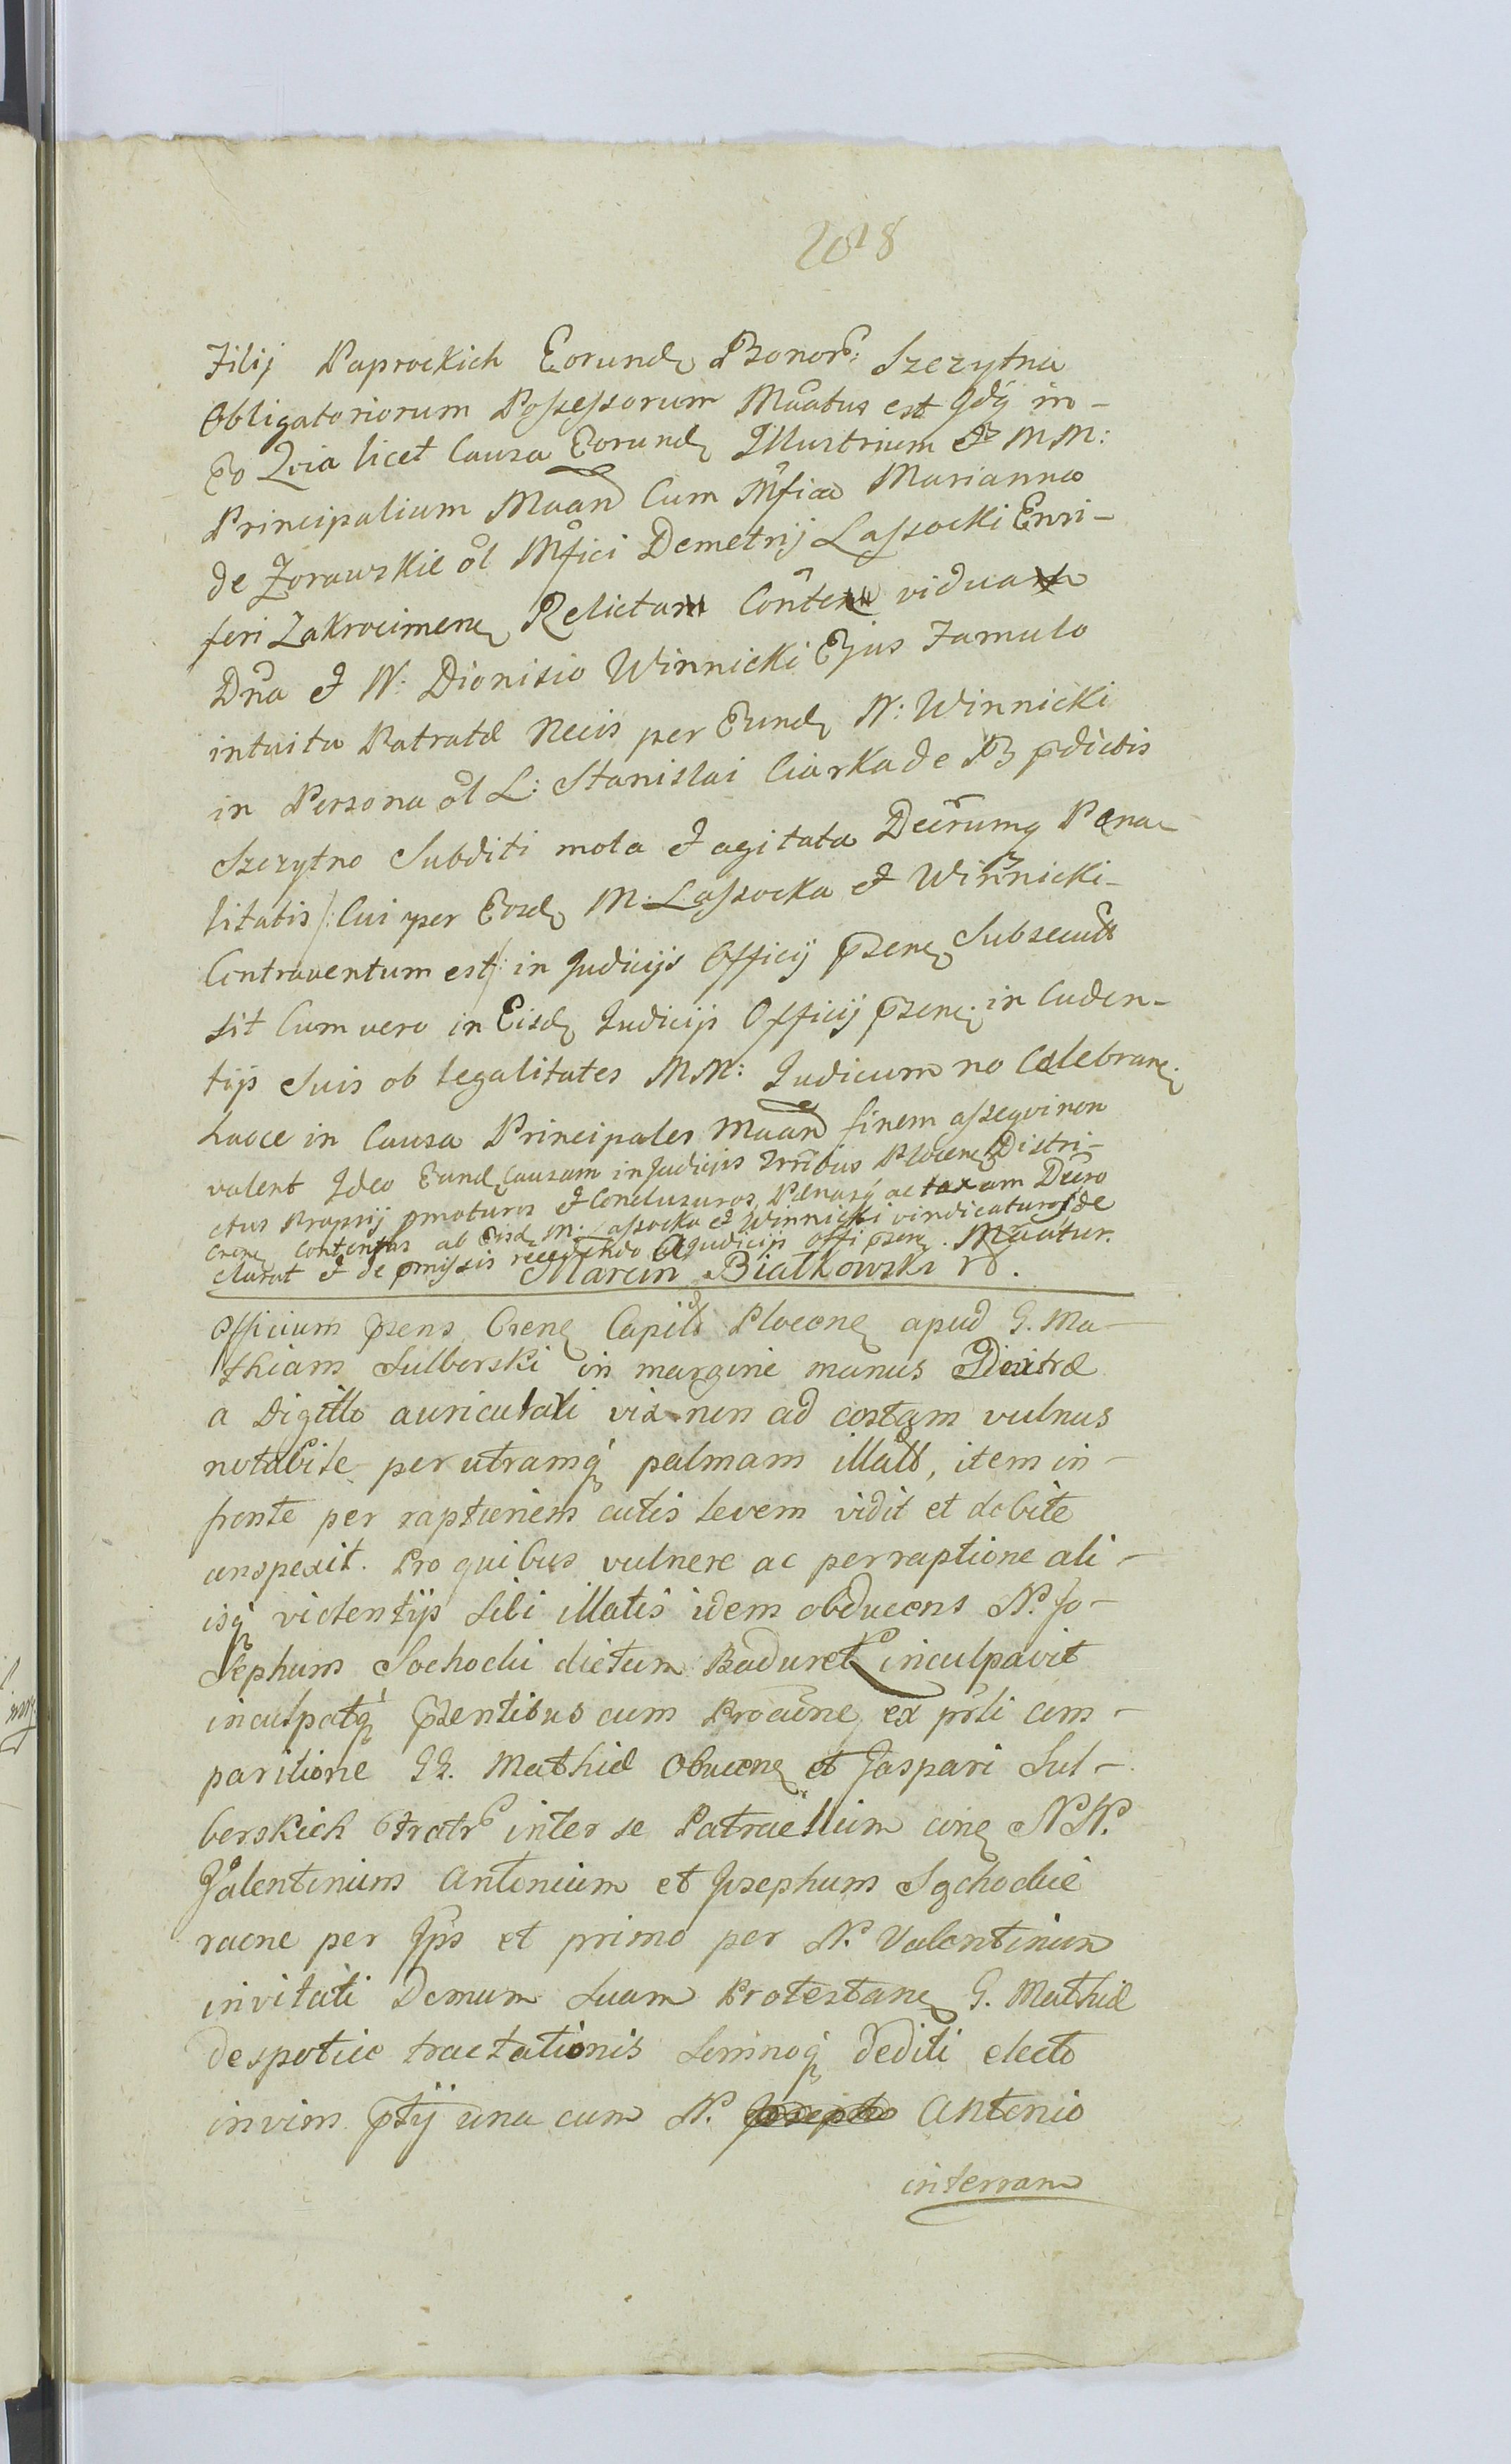 2018
Filij Paprockich Eorund Bonor: Szczytna
Obligatoriorum Possessorum Mãatus est Idq̃ in-
eo Qvia licet Causa Eorund Illustrium et MM:
Principalium Maan̄ Cum Mfica Marianna
de Zorawskie ol Mfici Demetrij Lassocki Ensi-
feri Zakrocimen Relicta Conte vidua
Dña et N: Dionisio Winnicki Ejus Famulo
intuitu Patratæ Necis per Eund N: Winnicki
in Persona ol L: Stanislai Ciarka de B p̃dictis
Szczytno Subditi mota et agitata Decrumq Pæna-
litatis /: Cui per Eosd M: Lassocka et Winnicki-
Contraventum est :/ in Judicijs Officij p̃sen Subsecuta
sit Cum vero in Eisd Judicijs Officij p̃sen: in Caden-
tijs Suis ob legalitates MM: Judicum no Celebran:
hacce in Causa Principales Maan̄ finem assequi non
valent Ideo Eand Causam in Judicijs Trr̃ibus Plocen Distri-
ctus Proprij p̃moturos et Conclusuros Pænasq̃ ac taxam Decro
Cnene Contentas ab Eisd M: Lassocka et Winnicki vindicaturos de
clarat et de p̃missis recedendo A Judicijs Offi p̃sen. Mãatur.
Marcin Białkowski
Officium p̃sens Crene Capitle Plocene apud G. Ma-
thiam Sulberski in margine manus Dextræ
a Digitlo auriculari vix non ad costam vulnus
notabile per utramq̃ palmam illatt, item in-
fronte per raptionem cutis levem vidit et debite
conspexit. Pro quibus vulnere ac perraptione ali-
isq̃ violentijs sibi illatis idem obducens N. Jo-
sephum Sochocki dictum Badurek inculpavit
inculpatq̃ p̃sentibus cum Procãne ex p̃sli com-
paritione GG. Mathiæ Obucene et Gaspari Sul-
berskich Fratr inter se Patruelium cine NN.
Valentinum Antonium et Josephum Sochockie
raene per Ips et primo per N. Valentinum
invitati Domum Suam Protestane G. Mathiæ
despotice tractationis Somnoq̃ dediti electo
invim p̃tij una cum N. Antonio
interram